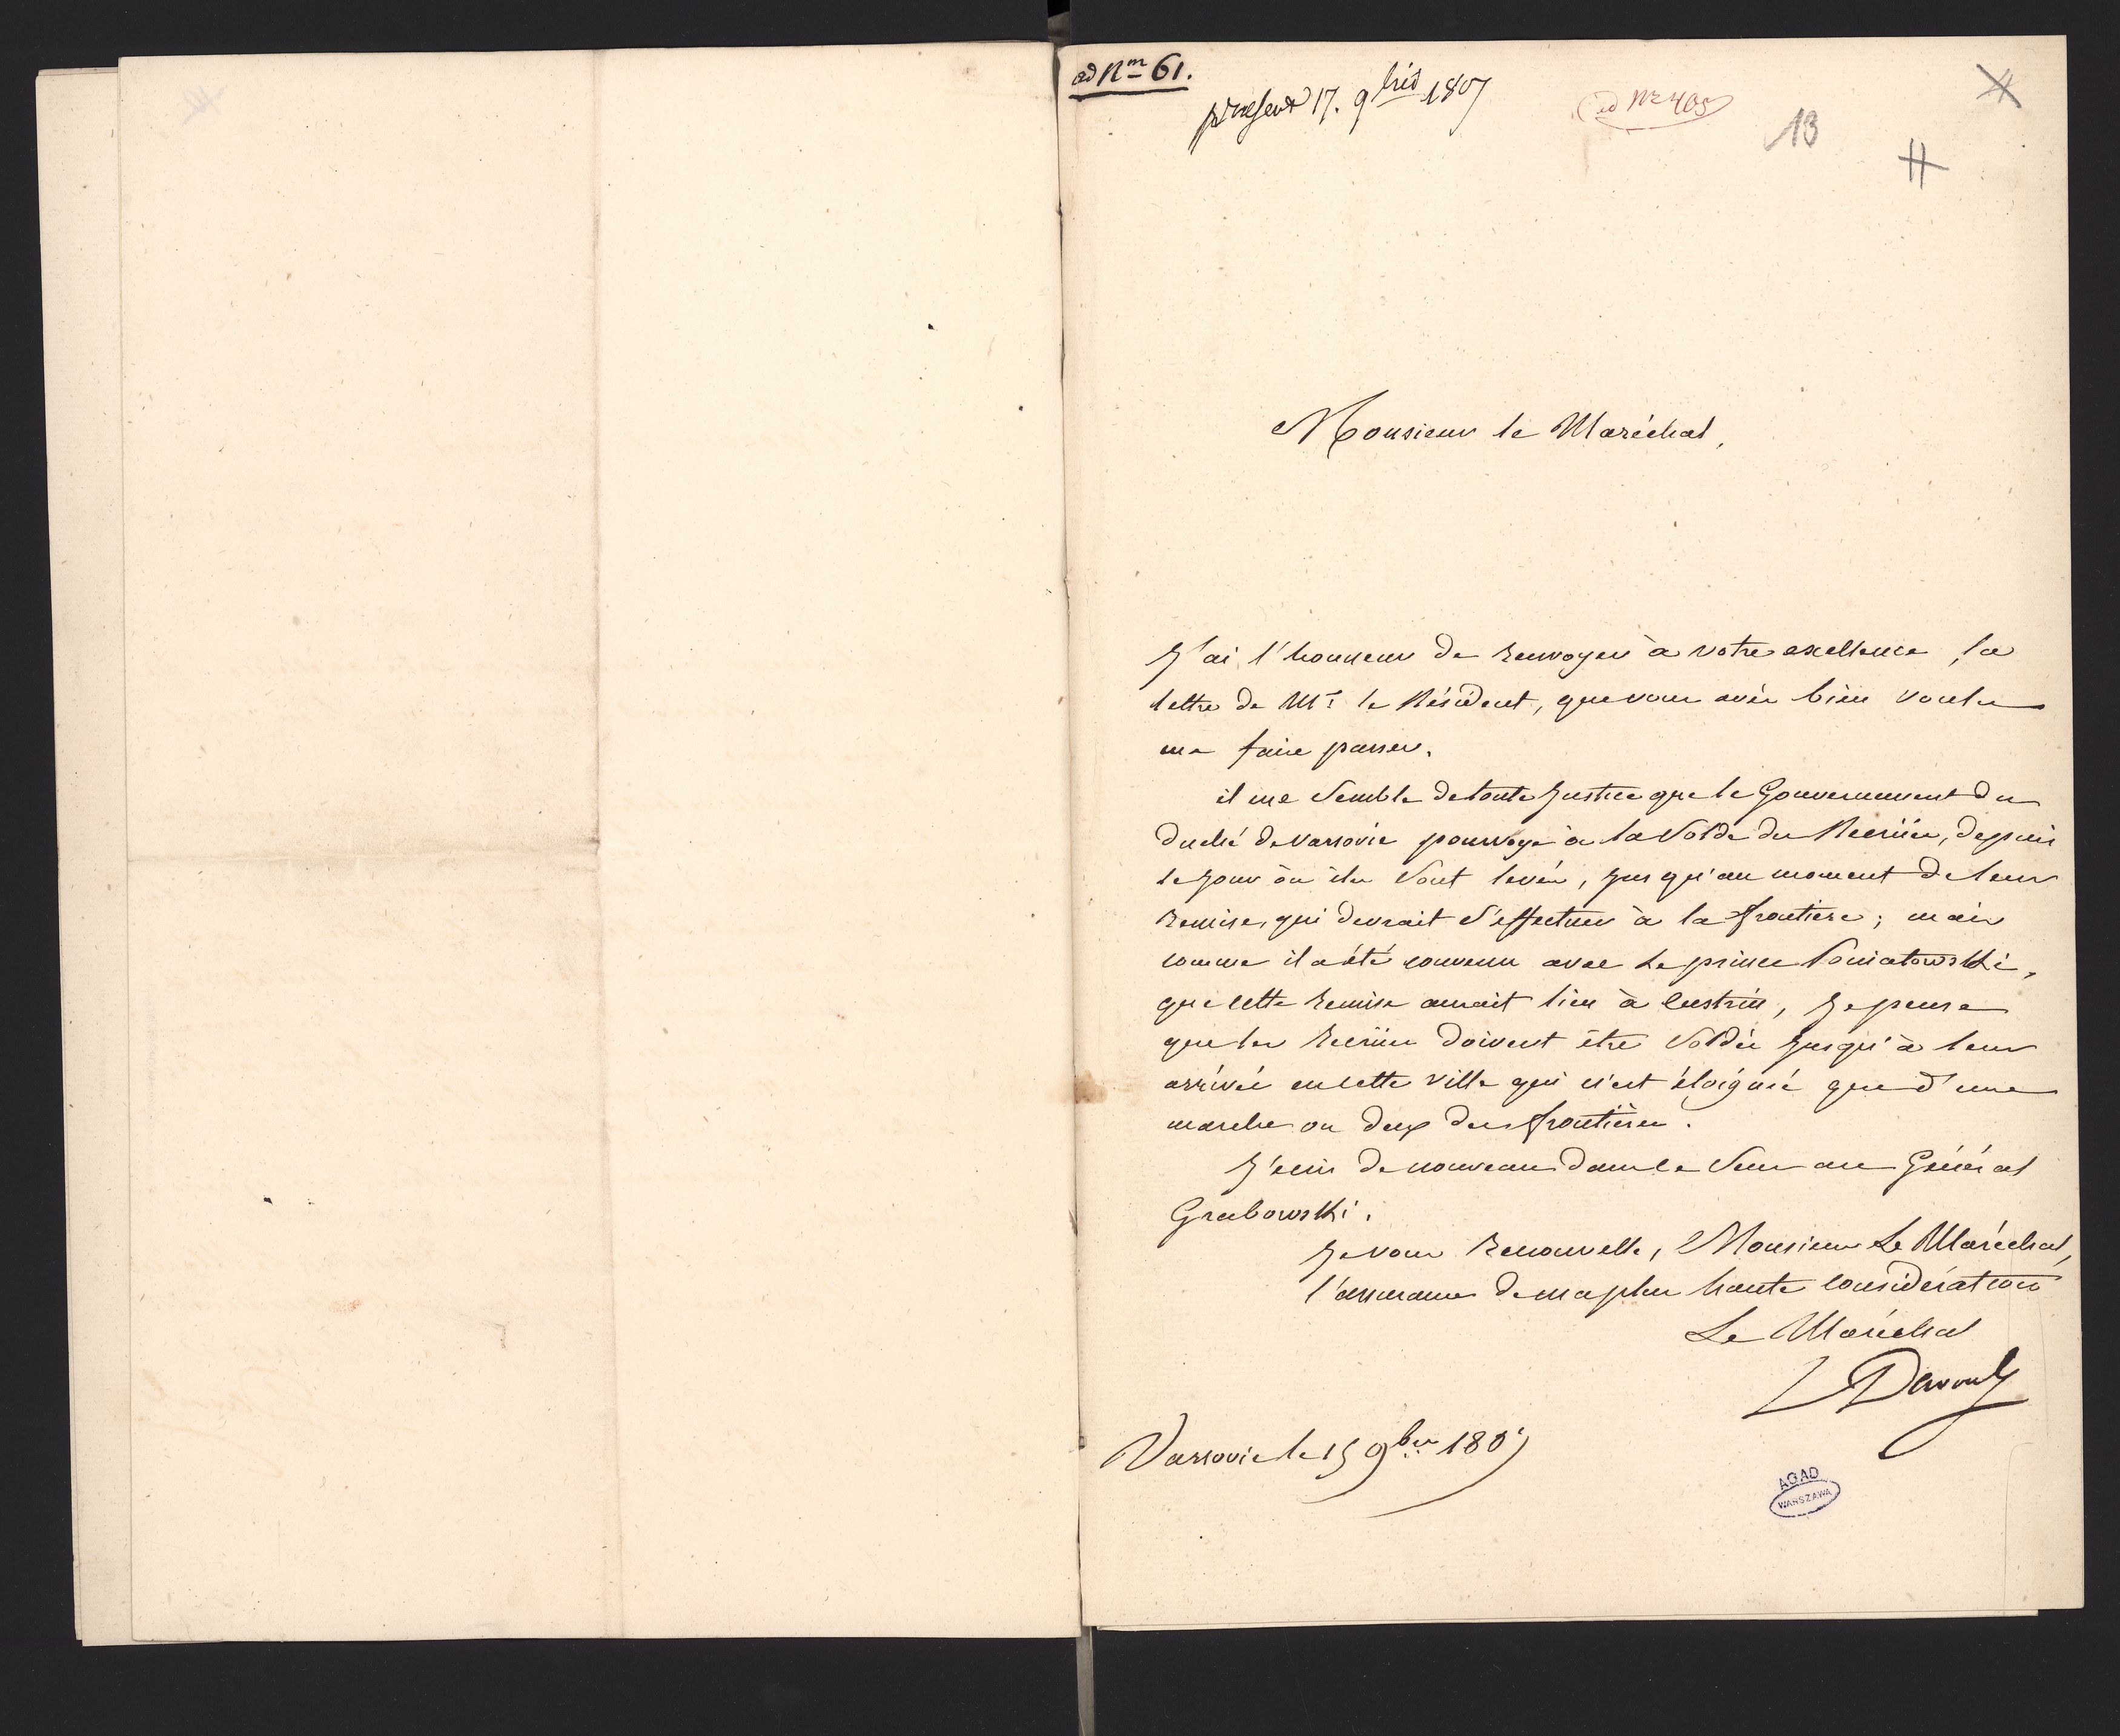 ad Nm 61.
praesent 17. 9bris 1807
ad Nr 405
13
Monsieur le Maréchal,
J'ai l'honneur de renvoyer à votre excellence, la
lettre de Mr. le Résident, que vous avés bien voulu
me faire passer.
il me semble de toute justice que le Gouvernement du
duché de varsovie pourvoye à la solde des Recrües, depuis
le jour où ils sont levés, jusqu'au moment de leur
remise, qui devrait s'effectuer à la frontiere; mais
comme il a été convenu avec Le prince Poniatowski,
que cette remise aurait lieu à Custrin, je pense
que les recrües doivent être soldés jusqu'à leur
arrivée en cette ville qui n'est éloignée que d'une
marche ou deux des frontières.
J'écris de nouveau dans ce sens au Général
Grabowski.
Je vous renouvelle, Monsieur Le Maréchal,
l'assurance de ma plus haute considération
Le Maréchal
L Davout
Varsovie le 15 9bre 1807
AGAD
WARSZAWA